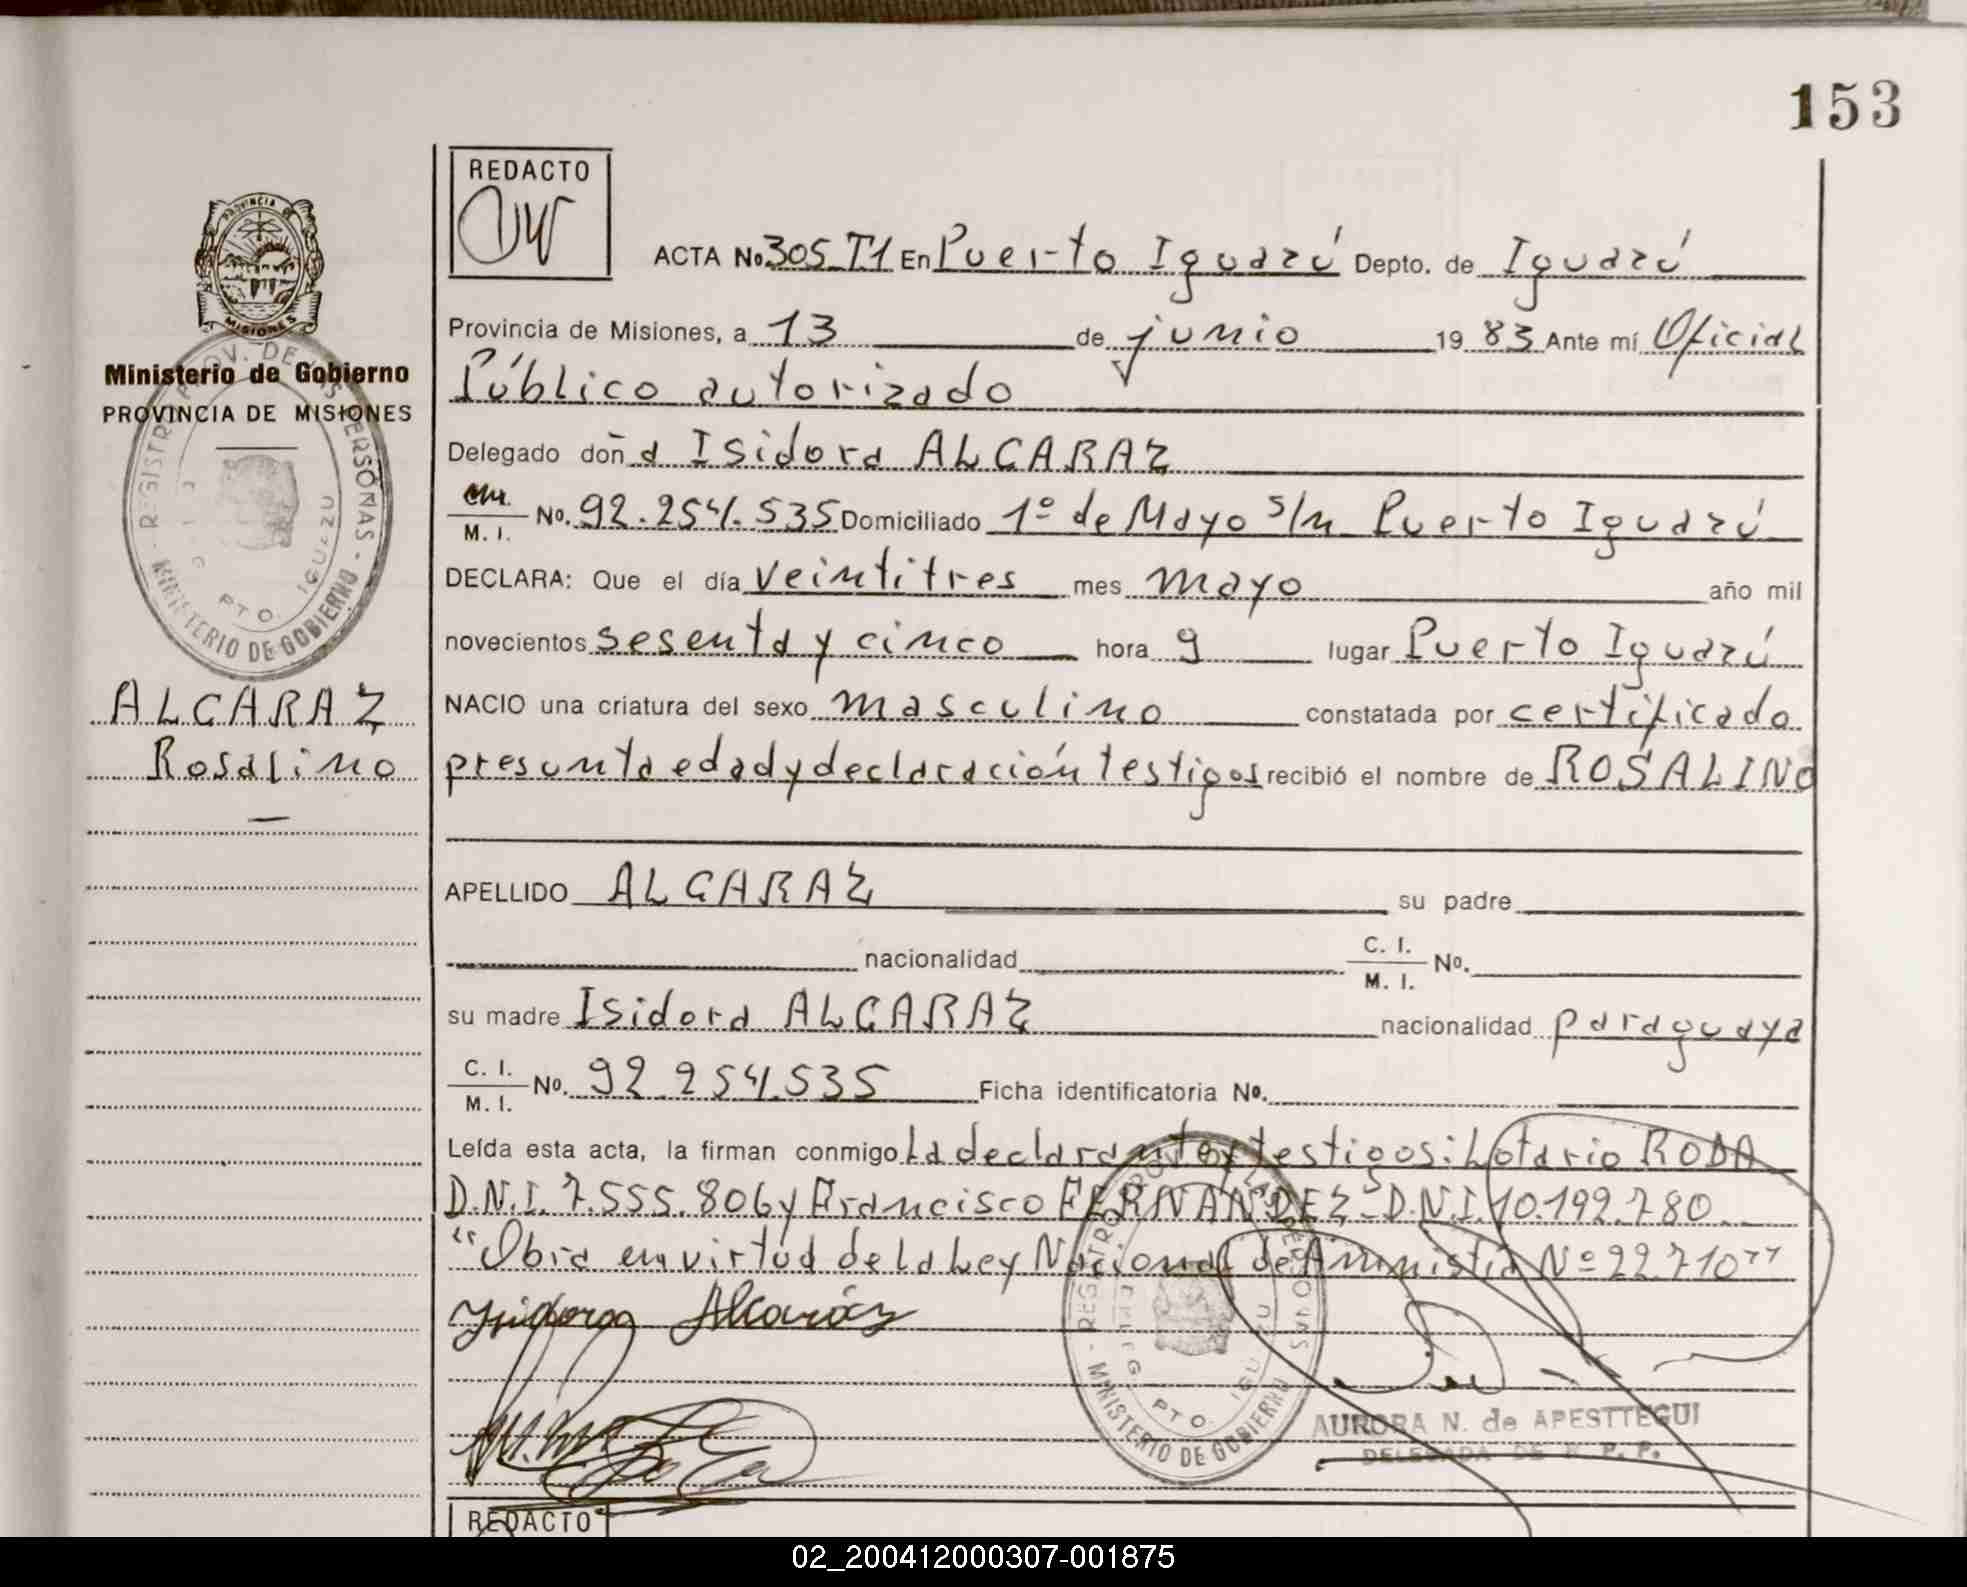 153
REDACTO
ACTA No. 305 T1 En Puerto Iguazú Depto. de Iguazú
PROVINCIA DE
MISIONES
Provincia de Misiones, a 13 de junio 1983 Ante mí Oficial
Ministerio de Gobierno
Público autorizado
PROVINCIA DE MISIONES
Delegado doña Isidora ALCARAZ
No. 92.254.535 Domiciliado 1º de Mayo s/n Puerto Iguazú
M. I.
REGISTRO PROV. DE LAS PERSONAS - MINISTERIO DE GOBIERNO -
PTO. IGUAZU
DECLARA: Que el día veintitres mes mayo año mil
novecientos sesenta y cinco hora 9 lugar Puerto Iguazú
ALCARAZ
NACIO una criatura del sexo masculino constatada por certificado
Rosalino
presunta edad y declaración testigos recibió el nombre de ROSALINO
APELLIDO ALCARAZ su padre
nacionalidad C. I. M. I. No.
su madre Isidora ALCARAZ nacionalidad paraguaya
C. I. M. I. No. 92.254.535 Ficha identificatoria No.
Leída esta acta, la firman conmigo La declarante y testigos: Lotario RODA
D.N.I. 7.555.806 y Francisco FERNANDEZ - D.N.I. 10.192.780
"Obra en virtud de la Ley Nacional de Amnistía Nº 22.710"
Isidora Alcaráz
REGISTRO PROV. DE LAS PERSONAS - MINISTERIO DE GOBIERNO -
PTO. IGUAZU
AURORA N. de APESTTEGUI
DELEGADA DE R. P. P.
REDACTO
02_200412000307-001875